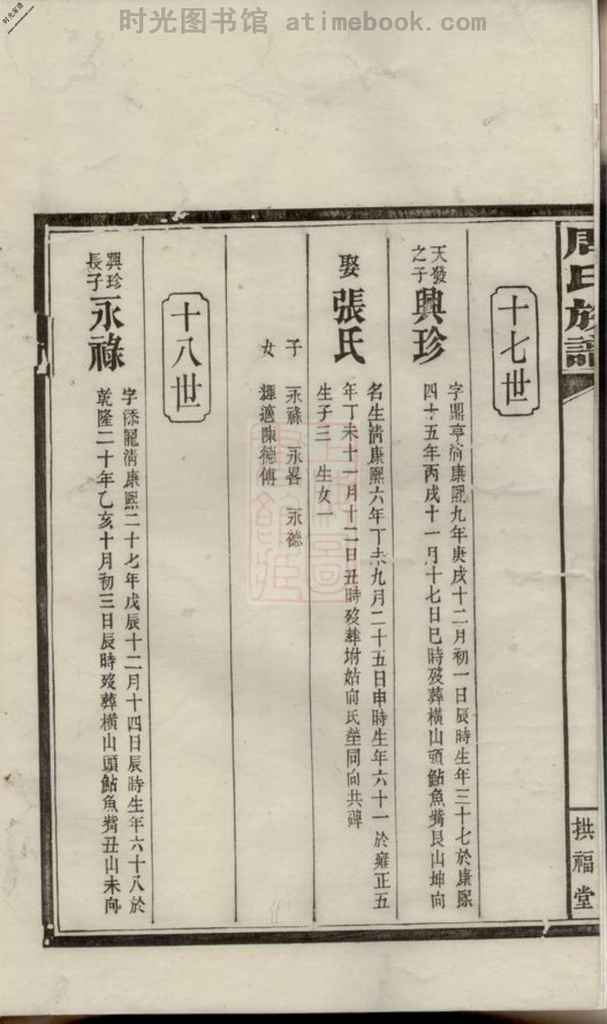 时光图书馆 atimebook.com
周氏族譜
拱福堂
十七世
天發
之子
興珍
字鼎亭清康熙九年庚戌十二月初一日辰時生年三十七於康熙
四十五年丙戌十一月十七日巳時歿葬橫山頭鮎魚嘴艮山坤向
娶
張氏
名生清康熙六年丁未九月二十五日申時生年六十一於雍正五
年丁未十一月十二日丑時歿葬坿姑向氏塋同向共碑
生子三 生女一
子 永祿 永畧 永德
女 適陳德傅
十八世
興珍
長子
永祿
字添寵清康熙二十七年戊辰十二月十四日辰時生年六十八於
乾隆二十年乙亥十月初三日辰時歿葬橫山頭鮎魚嘴丑山未向